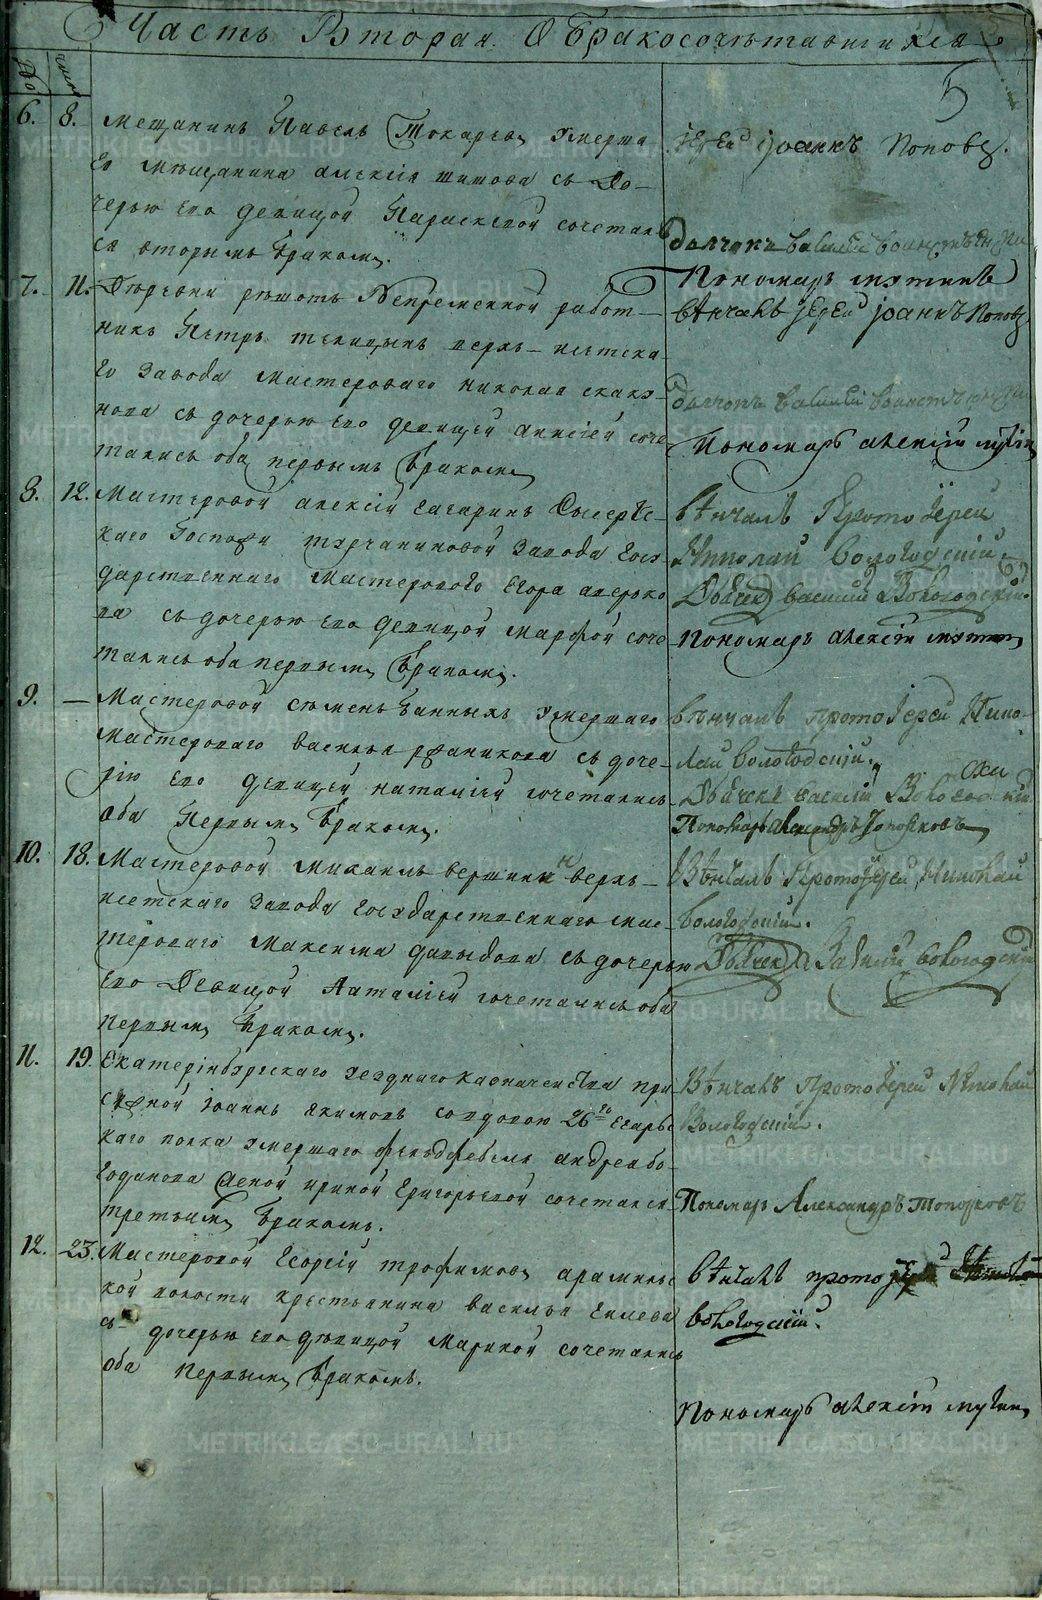 Часть Вторая. О Бракосочетавшихся
№ число
5
6. 8. Мещанинъ Павелъ Токаревъ умерша
го мещанина Алексія Шитова съ до-
черью его девицой Параскевой сочетал
ся вторымъ бракомъ.
Іерей Іоаннъ Поповъ.
Дьячокъ Василий
Пономарь Мутинъ
7. 11. непременной работ-
никъ Петръ верхъ-исетска-
го завода мастероваго Николая
нова съ дочерью его девицей Анисіей соче
тались оба первымъ бракомъ
Венчалъ Іерей Іоаннъ Поповъ
Дьячокъ Василий
Пономарь Алексій Мутин
8. 12. Мастеровой Алексій Сагаринъ Сысертс-
каго Госпожи Турчаниновой завода госу
дарственнаго мастероваго Егора
ва съ дочерью его девицой Марфой соче
тались оба первымъ бракомъ.
Венчалъ Протоіерей
Николай Вологодскій
Дьячек Василий Вологодскій
Пономарь Алексій Мутин
9. — Мастеровой Семенъ Банныхъ умершаго
мастероваго Василья съ доче-
рію его девицей Наталіей сочетались
оба первымъ бракомъ.
Венчалъ протоіерей Нико-
лай Вологодскій.
Дьячекъ Василій Вологодскій
Пономарь Александръ Топорковъ
10. 18. Мастеровой Михаилъ Вершинин верхъ-
исетскаго завода государственнаго мас-
тероваго Максима Давыдова съ дочерью
его девицой Наталіей сочетались оба
первымъ бракомъ.
Венчалъ Протоіерей Николай
Вологодскій.
Дьячек Василий Вологодскій
11. 19. Екатеринбургскаго уезднаго казначейства при
сяжной Іоаннъ Якимовъ со вдовою 26го егарьс
каго полка умершаго фельдфебеля Андрея Бо-
гданова женой Ириной Григорьевой сочетался
третьимъ бракомъ.
Венчалъ Протоіерей Николай
Вологодскій.
Пономарь Александръ Топорковъ
12. 23. Мастеровой Георгій Трофимовъ арамильс
кой волости крестьянина Василья
съ дочерью его девицой Мариной сочетались
оба первымъ бракомъ.
Венчалъ протоіерей Николай
Вологодскій.
Пономарь Алексій Мутин
METRIKI.GASO-URAL.RU